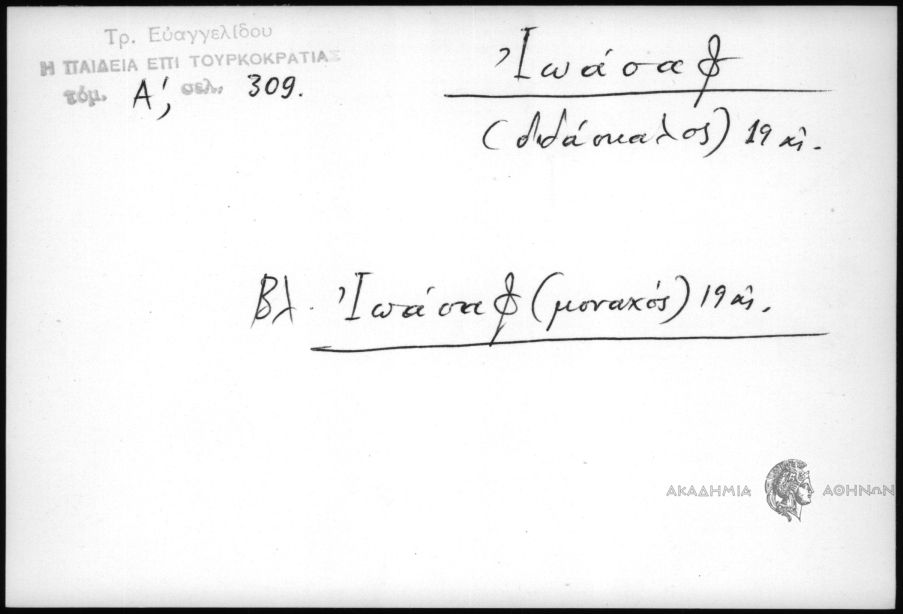 Τρ. Εὐαγγελίδου
Η ΠΑΙΔΕΙΑ ΕΠΙ ΤΟΥΡΚΟΚΡΑΤΙΑΣ
τόμ. Α', σελ. 309.
Ἰωάσαφ
(διδάσκαλος) 19 αἰ.
Βλ. Ἰωάσαφ (μοναχός) 19 αἰ.
ΑΚΑΔΗΜΙΑ ΑΘΗΝΩΝ